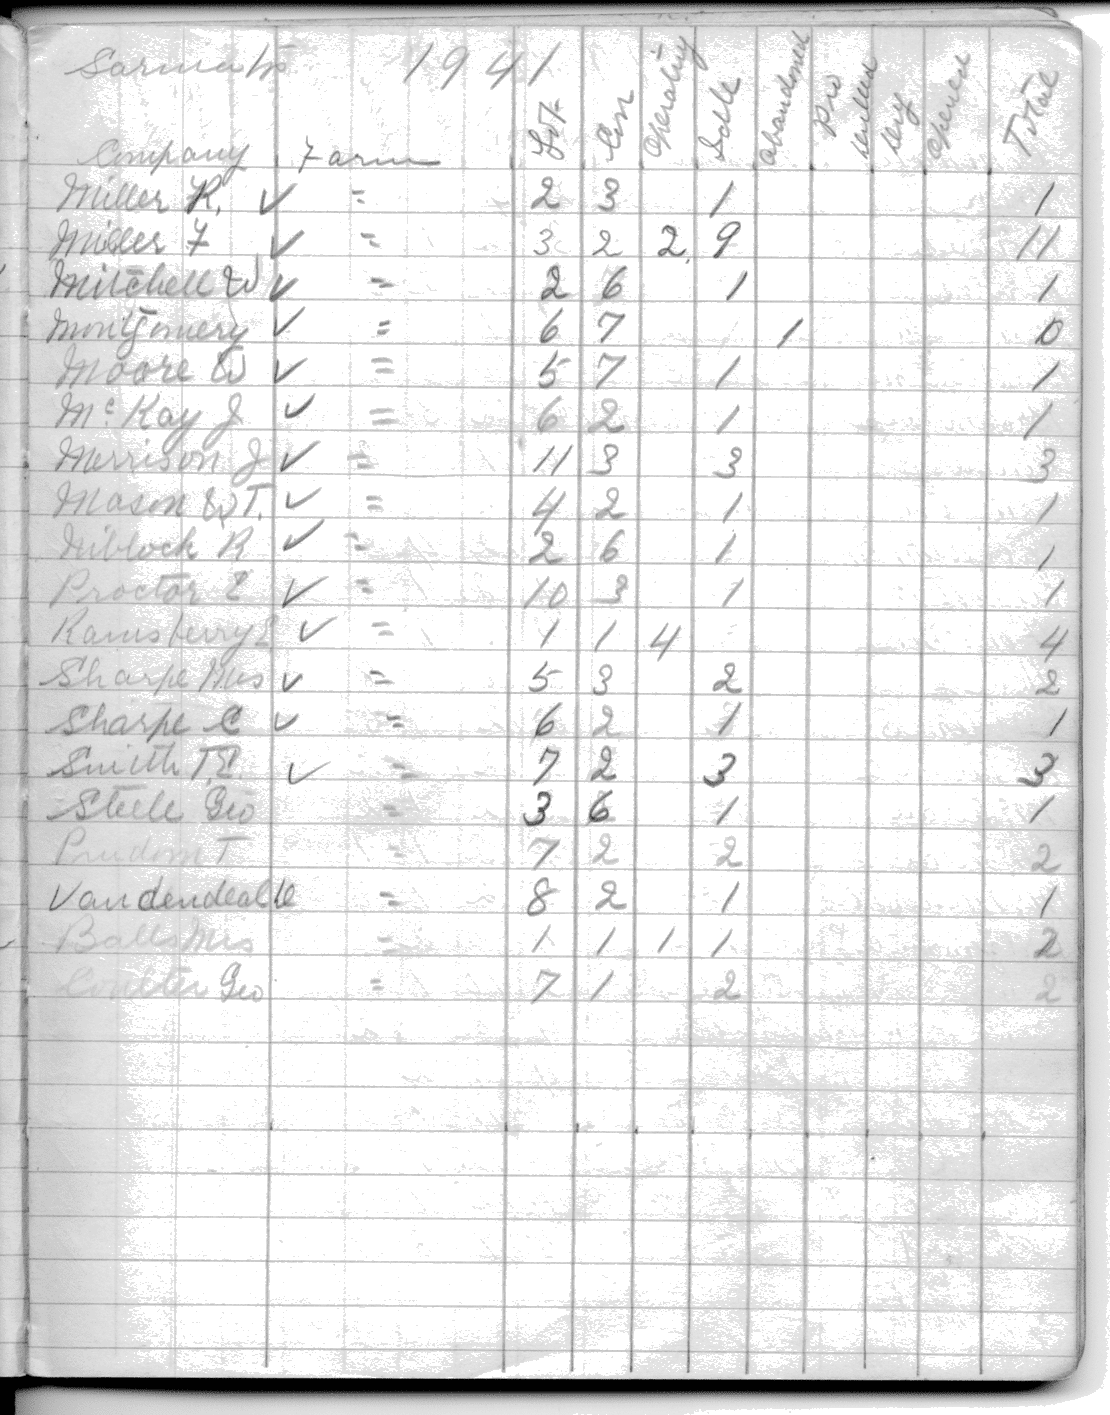 Sarnia tp 1941
Company Farm Lot Con Operating Idle Abandoned Pro drilled dry opened Total
Miller R. ✓ = 2 3 1 1
Miller F ✓ = 3 2 2. 9 11
Mitchell W ✓ = 2 6 1 1
Montgomery ✓ = 6 7 1 0
Moore W ✓ = 5 7 1 1
Mc Kay J ✓ = 6 2 1 1
Merrison J ✓ = 11 3 3 3
Mason W.T. ✓ = 4 2 1 1
Niblock R ✓ = 2 6 1 1
Proctor E ✓ = 10 3 1 1
Ramsberry E ✓ = 1 1 4 4
Sharpe Mrs ✓ = 5 3 2 2
Sharpe C ✓ = 6 2 1 1
Smith T.E. ✓ = 7 2 3 3
Steele Geo = 3 6 1 1
Prudom T = 7 2 2 2
Vandendealle = 8 2 1 1
Balls Mrs = 1 1 1 1 2
Coulter Geo = 7 1 2 2